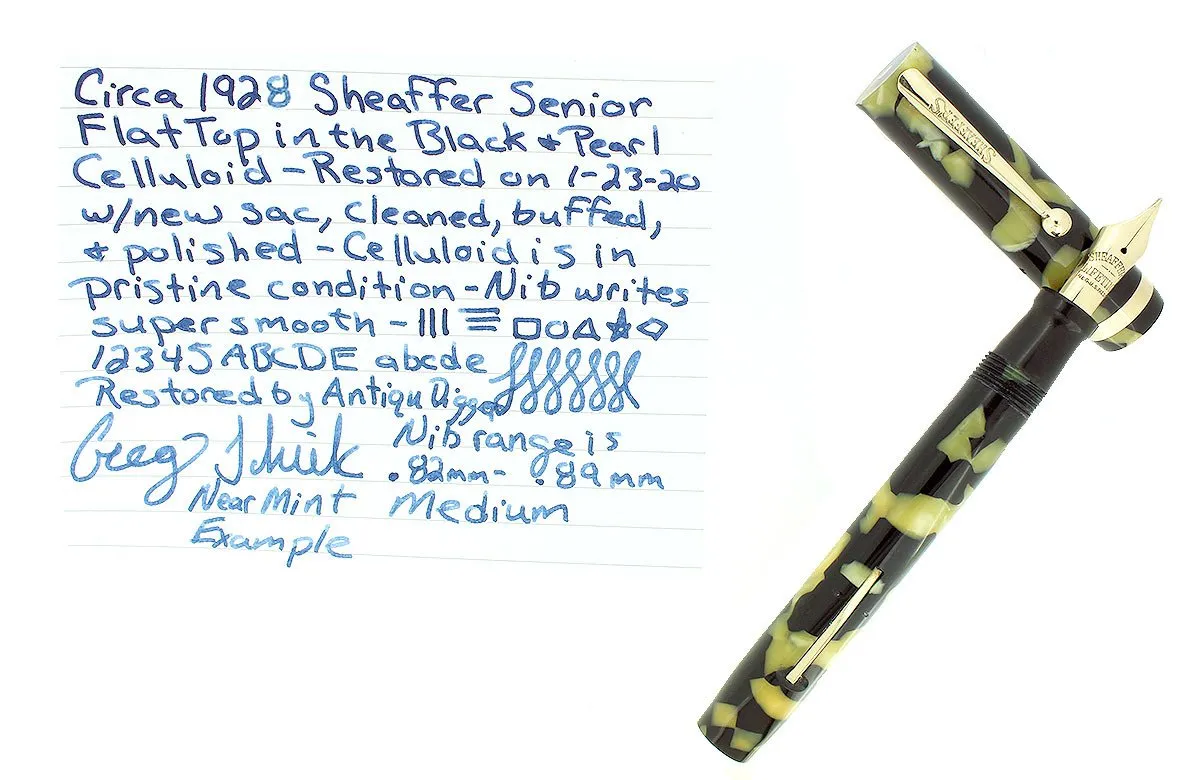 Circa 1928 Sheaffer Senior
Flat Top in the Black & Pearl
Celluloid - Restored on 1-23-20
w/new sac, cleaned, buffed,
& polished - Celluloid is in
pristine condition - Nib writes
super smooth -
12345 ABCDE abcde
Restored by AntiquDigger
Greg
Nib range is
.82mm - .89mm
Near Mint Medium
Example
SHEAFFER'S
SHEAFFER'S
LIFETIME